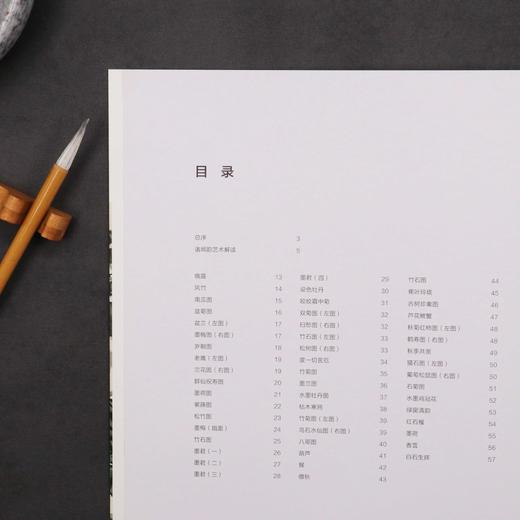 目 录
总序 3
诸纸韵艺术解读 5
13
风竹 14
南瓜图 15
盆菊图 16
盆兰（左图） 17
墨梅图（右图） 17
岁朝图 18
（左图） 18
兰花图（右图） 19
群仙祝寿图 20
墨荷图 21
紫藤图 22
松竹图 23
墨梅（扇面） 24
竹石图 25
墨君（一） 26
墨君（二） 27
墨君（三） 28
墨君（四） 29
设色牡丹 30
皎皎霜中菊 31
双菊图（左图） 32
扫愁图（右图） 32
竹石图（左图） 33
松树图（右图） 33
度一切苦厄 34
竹菊图 35
墨兰图 36
水墨牡丹图 37
枯木寒鸦 38
竹菊图（左图） 39
鸟石水仙图（右图） 39
八哥图 40
葫芦 41
猴 42
傲秋 43
竹石图 44
蕉叶玲珑 45
古树珍禽图 46
芦花螃蟹 47
秋菊红柿图（左图） 48
鹤寿图（右图） 48
秋季共坐 49
猫石图（左图） 50
葡萄松鼠图（右图） 50
石菊图 51
水墨鸡冠花 52
绿窗清韵 53
红石榴 54
墨荷 55
香雪 56
白石生辉 57